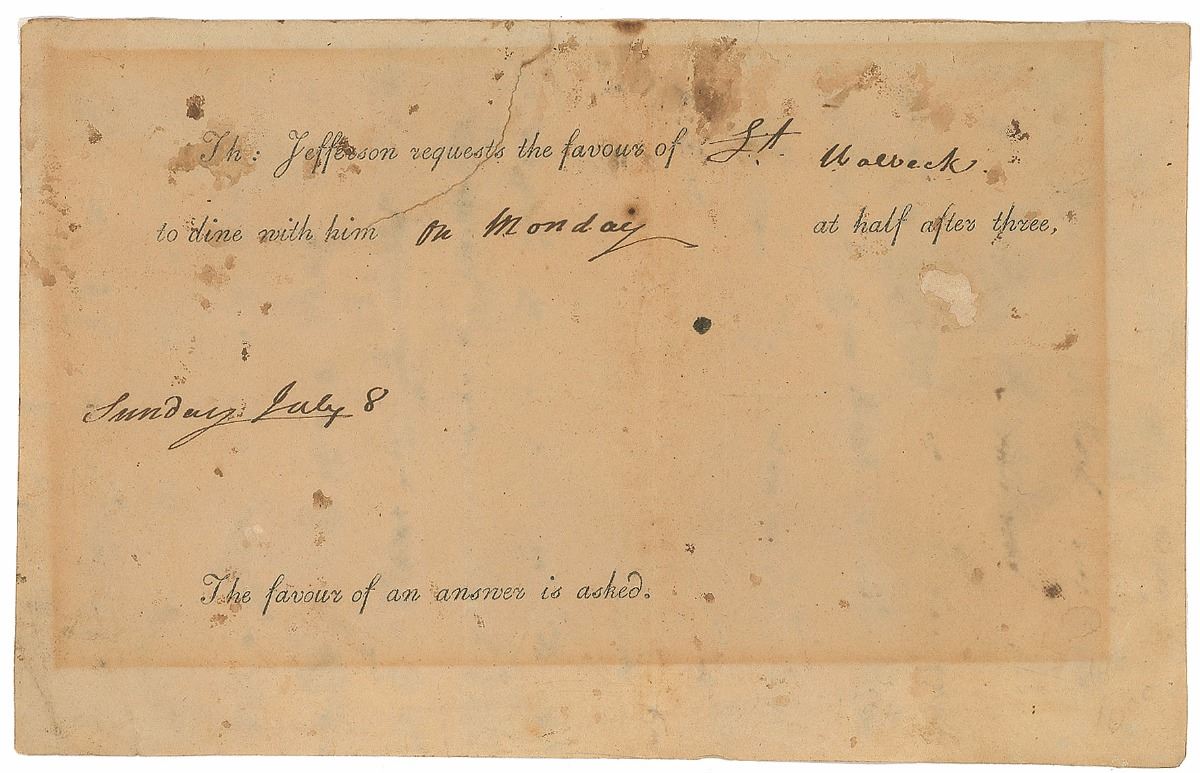 Th: Jefferson requests the favour of Lt. Walback.
to dine with him on Monday at half after three,
Sunday July 8
The favour of an answer is asked.